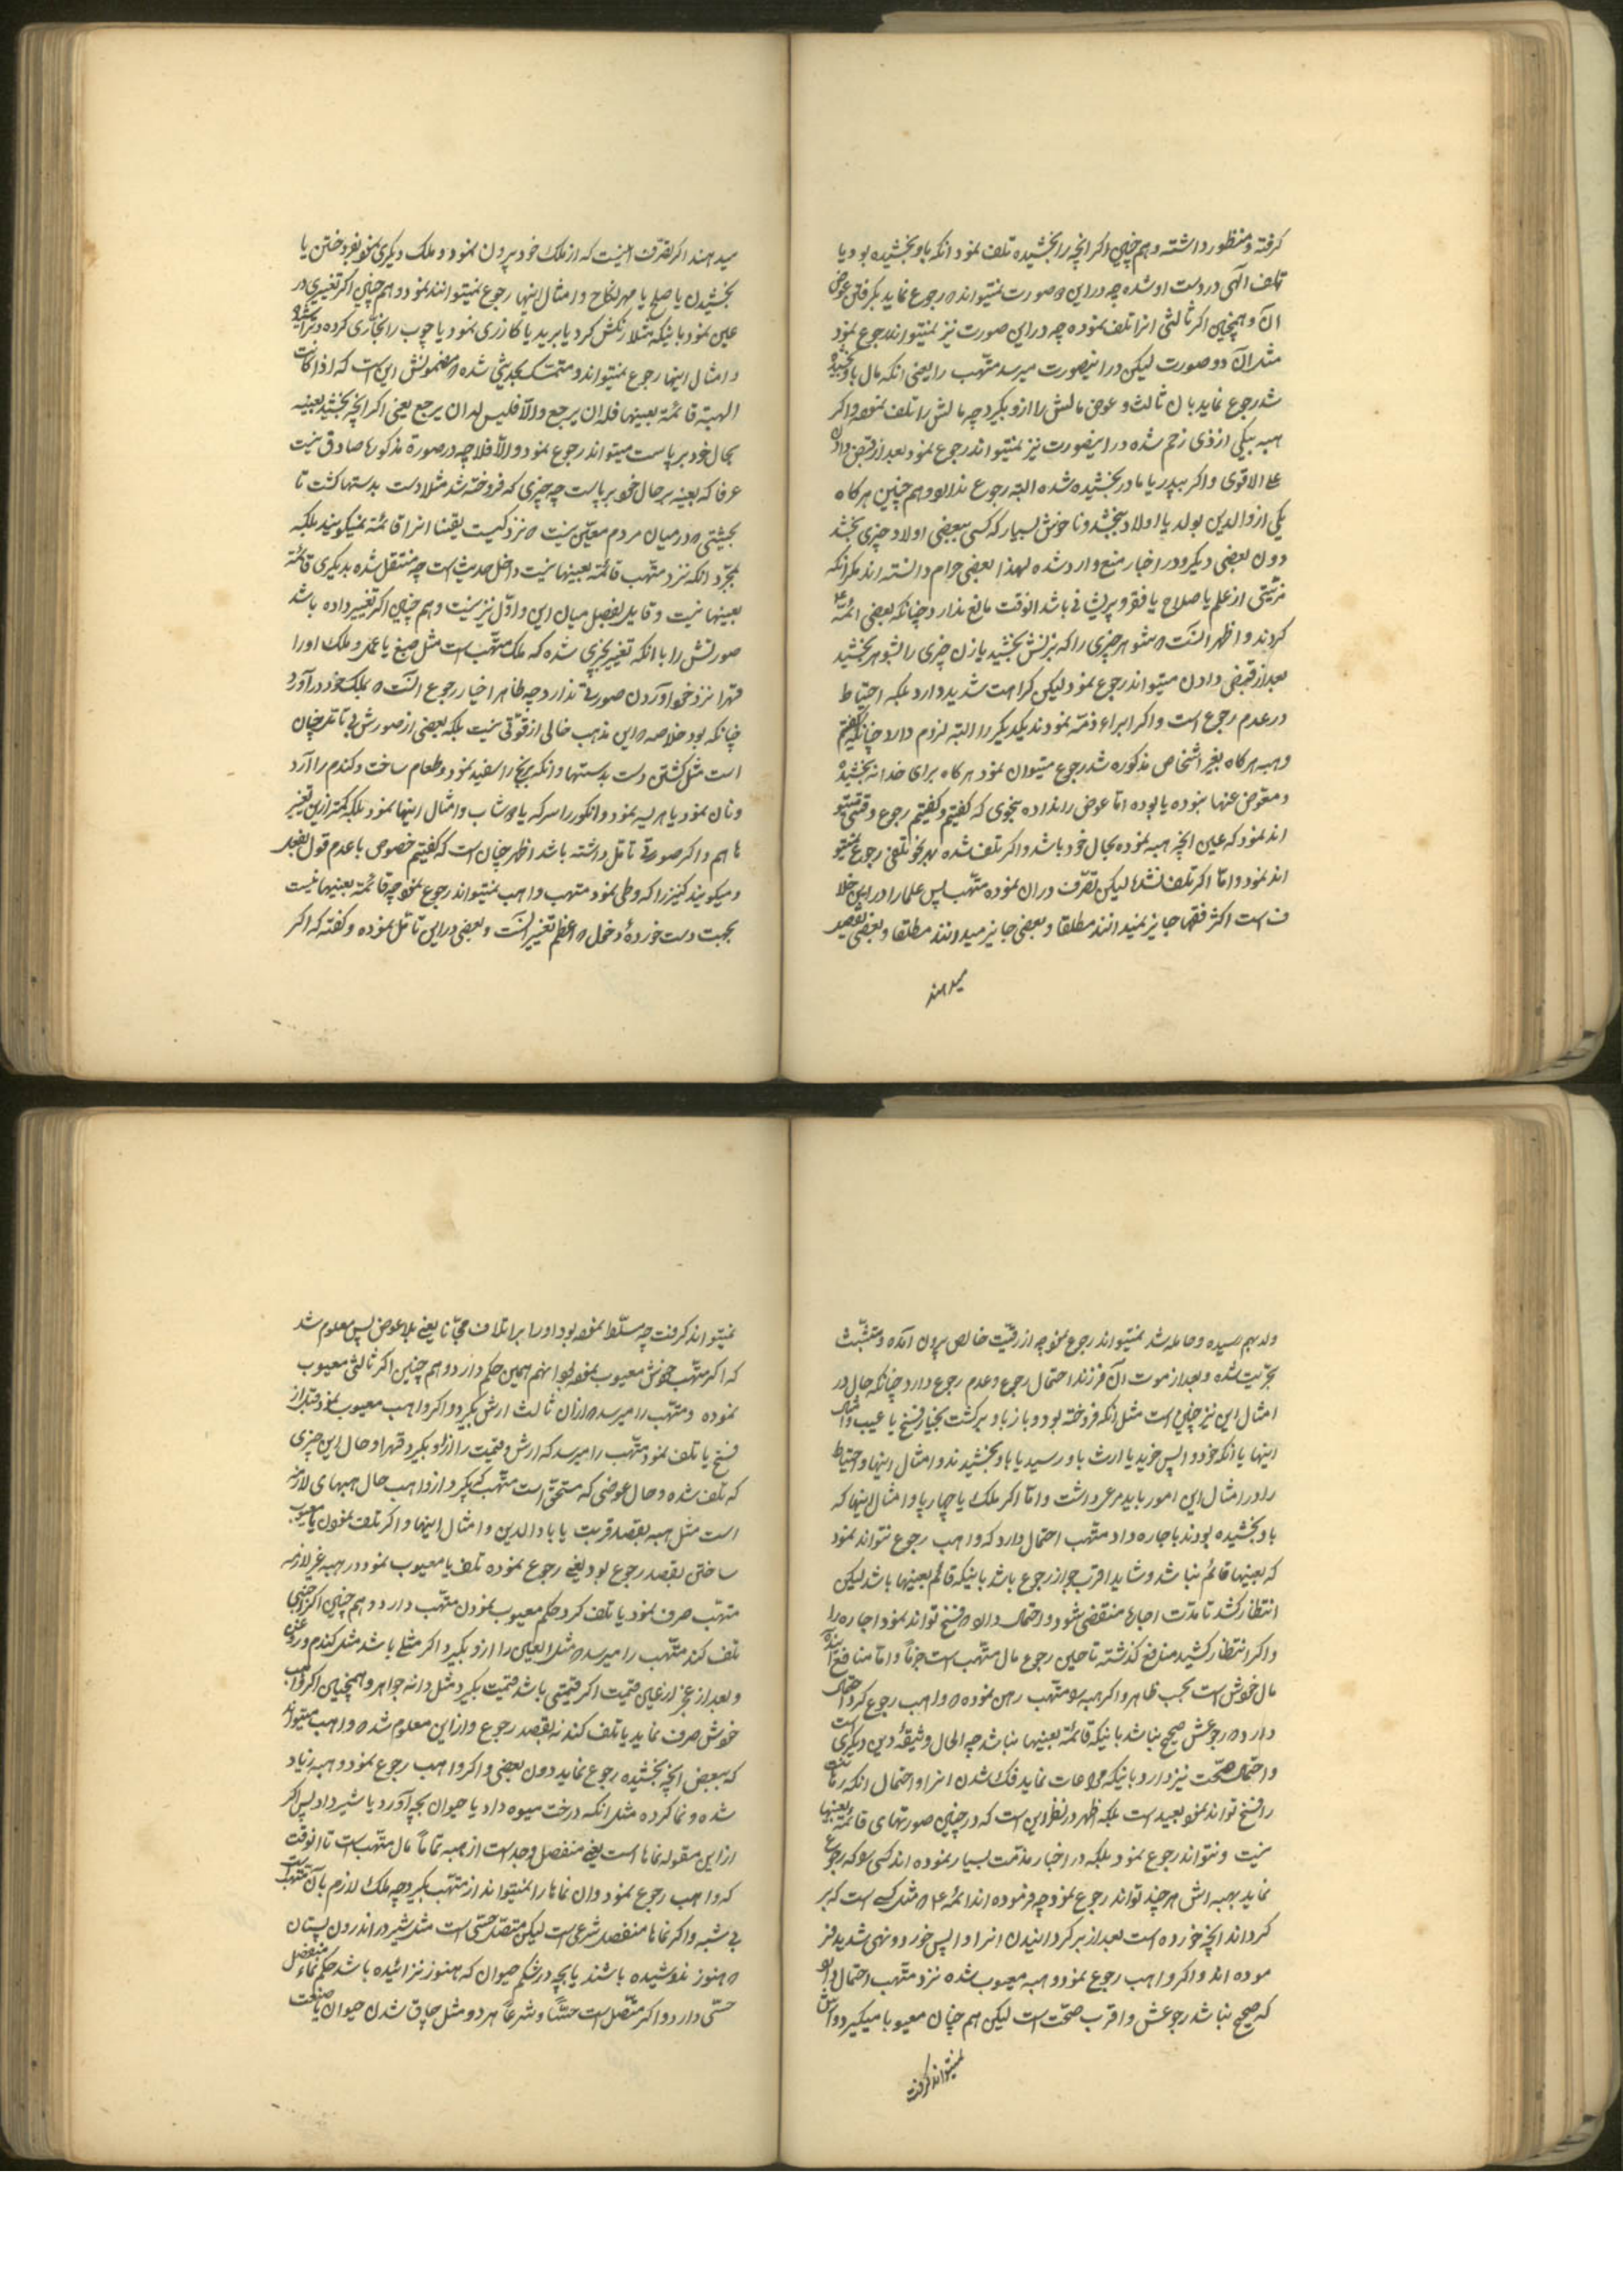 گرفته و منظور داشته و هم چنین اگر آنچه را بخشیده تلف نمود آنکه باو بخشیده بود یا
تلف آلهی در دست او شده چه در این صورت نمیتواند رجوع نماید بگرفتن عوض
آن و همچنین اگر ثالثی آنرا تلف نموده چه در این صورت نیز نمیتواند رجوع نمود
مثل آن دو صورت لیکن در اینصورت میرسد متّهب را یعنی آنکه مال باو بخشیده
شد رجوع نماید بان ثالث و عوض مالش را ازو بگیرد چه مالش را تلف نموده و اگر
هبه بیکی از ذی رحم شده در اینصورت نیز نمیتواند رجوع نمود بعد از قبض دادن
علی الاقوی و اگر بپدر یا مادر بخشیده شده البته رجوع ندارد و هم چنین هرگاه
یکی از والدین بولد یا اولاد ببخشد و ناخوش بسیار که کسی ببعضی اولاد چیزی بخشد
دون بعضی دیگر و در اخبار منع وارد شده لهذا بعضی حرام دانسته اند مگر آنکه
مزیّتی از علم یا صلاح یا فقر و پریشانی باشد آنوقت مانع ندارد چنانکه بعضی ائمّه
کردند و اظهر آنست که شوهر چیزی را که بزنش بخشید یا زن چیزی را بشوهر بخشید
بعد از قبض دادن میتواند رجوع نمود لیکن کراهت شدید دارد بلکه احتیاط
در عدم رجوع است و اگر ابراء ذمّه نمودند یکدیگر را البته لزوم دارد چنانکه گفتم
و هبه هرگاه بغیر اشخاص مذکوره شد رجوع میتوان نمود هرگاه برای خدا نه بخشیده
و معوّض عنها نبوده یا بوده امّا عوض را نداده بنحوی که گفتیم و گفتیم رجوع وقتی میتو
اند نمود که عین آنچه هبه نموده بحال خود باشد و اگر تلف شده بهر نحو تلفی رجوع نمیتو
اند نمود و امّا اگر تلف نشده لیکن تصرّف در آن نموده متّهب پس علما را در این خلا
ف است اکثر فقها جایز نمیدانند مطلقا و بعضی جایز میدانند مطلقا و بعضی تفصیل
میدهند
میدهند اگر تصرّف اینست که از ملک خود بیرون نمود و ملک دیگری نمود بفروختن یا
بخشیدن یا صلح یا مهر نکاح و امثال اینها رجوع نمیتوانند نمود و هم چنین اگر تغییری در
عین نمود باینکه مثلا رنگش کرد یا برید یا گازری نمود یا چوب را نجاری کرده و تراشیده
و امثال اینها رجوع نمیتواند و متمسّک بحدیثی شده که مضمونش این است که اذا کانت
الهبة قائمة بعینها فله ان یرجع و الّا فلیس له ان یرجع یعنی اگر آنچه بخشید بعینه
بحال خود بر پاست میتواند رجوع نمود و الّا فلا چه در صورة مذکورها صادق نیست
عرفا که بعینه بر حال خود بر پاست چه چیزی که فروخته شد مثلا دست بدستها گشت تا
بحیثتی که در میان مردم معیّن نیست که نزد کیست یقینا انرا قائمة نمیگویند بلکه
بمجرّد آنکه نزد متّهب قائمة بعینها نیست داخل حدیث است چه منتقل شده بدیگری قائمة
بعینها نیست و قاید بفصل میان این و اوّل نیز نیست و هم چنین اگر تغییر داده باشد
صورتش را با آنکه تغییر بچیزی شده که ملک متّهب است مثل صبغ یا عمل و ملک او را
قهرا نزد خود آوردن صورتی ندارد چه ظاهر اخبار رجوع آنست که بملک خود در آورد
چنانکه بود خلاصه این مذهب خالی از قوّتی نیست بلکه بعضی از صورش بی تامّل چنان
است مثل گشتن دست بدستها و آنکه برنج را سفید نمود و طعام ساخت و گندم را آرد
و نان نمود یا هریسه نمود و انگور را سرکه یا دوشاب و امثال اینها نمود بلکه کمتر از این تغییر
ها هم و اگر صورتی تامّل داشته باشد اظهر چنان است که گفتیم خصوص با عدم قول بفصل
و میگویند کنیز را که وطی نمود متّهب واهب نمیتواند رجوع نمود چه قائمة بعینها نیست
بجهت دست خورده دخول که اعظم تغییر است و بعضی در این تامّل نموده و گفته که اگر
ولد بهم رسیده و حامله شد نمیتواند رجوع نمود چه از رقیّت خالص بیرون آمده و متشبّث
بحریّت شده و بعد از موت آن فرزند احتمال رجوع و عدم رجوع دارد چنانکه حال در
امثال این نیز چنین است مثل آنکه فروخته بود و باز باو برگشت بخیار فسخ یا عیب و امثال
اینها یا آنکه خود واپس خرید یا ارث باو رسید یا باو بخشیدند و امثال اینها و احتیاط
را در امثال این امور باید مرعی داشت و امّا اگر ملک یا چهار پا و امثال اینها که
باو بخشیده بودند باجاره داد متّهب احتمال دارد که واهب رجوع نتواند نمود
که بعینها قائم نباشد و شاید اقرب جواز رجوع باشد باینکه قائم بعینها باشد لیکن
انتظار کشد تا مدّت اجاره منقضی شود و احتمال دارد که فسخ تواند نمود اجاره را
و اگر انتظار کشید منافع گذشته تا حین رجوع مال متّهب است جزما و امّا منافع آینده
مال خودش است بحسب ظاهر و اگر هبه را متّهب رهن نموده که واهب رجوع کرد احتمال
دارد که رجوعش صحیح نباشد باینکه قائمة بعینها نباشد چه الحال وثیقهٔ دین دیگری است
و احتمال صحّت نیز دارد باینکه مراعات نماید فک شدن انرا و احتمال آنکه رهانت
را فسخ تواند نمود بعید است بلکه اظهر در نظر این است که در چنین صورتهای قائمة بعینها
نیست و نتواند رجوع نمود بلکه در اخبار مذمّت بسیار نموده اند کسی را که رجوع
نماید بهبه اش هر چند تواند رجوع نمود چه فرموده اند ائمّه ع که مثل کسی است که بر
گرداند آنچه خورده است بعد از برگردانیدن انرا واپس خورد و نهی شدید فر
موده اند و اگر واهب رجوع نمود و هبه معیوب شده نزد متّهب احتمال دارد
که صحیح نباشد رجوعش و اقرب صحّت است لیکن هم چنان معیوبا میگیرد و ارش
نمیتواند گرفت
نمیتواند گرفت چه مسلّط نموده بود او را بر اتلاف مجّانا یعنی بلا عوض پس معلوم شد
که اگر متّهب خودش معیوب نموده بود آنهم همین حکم دارد و هم چنین اگر ثالثی معیوب
نموده و متّهب را میرسد که از آن ثالث ارش بگیرد و اگر واهب معیوب نمود قبل از
فسخ یا تلف نمود متّهب را میرسد که ارش و قیمت را از او بگیرد قهرا و حال این چیزی
که تلف شده و حال عوضی که مستحق است متّهب که بگیرد از واهب حال هبهای لازمه
است مثل هبه بقصد قربت یا با والدین و امثال اینها و اگر تلف نمودن یا معیوب
ساختن بقصد رجوع بود یعنی رجوع نموده تلف یا معیوب نمود در هبه غیر لازمه
متّهب صرف نمود یا تلف کرد حکم معیوب نمودن متّهب دارد و هم چنین اگر اجنبی
تلف کند متّهب را میرسد که مثل یا عین را ازو بگیرد اگر مثلی باشد مثل گندم و روغن
و بعد از عجز از عین قیمت اگر قیمتی باشد قیمت بگیرد مثل دانه جواهر و همچنین اگر واهب
خودش صرف نماید یا تلف کند نه بقصد رجوع و از این معلوم شد که واهب میتواند
که ببعض آنچه بخشیده رجوع نماید دون بعضی و اگر واهب رجوع نمود و هبه زیاد
شده و نما کرده مثل آنکه درخت میوه داد یا حیوان بچه آورد یا شیر داد پس اگر
از این مقوله نماها است یعنی منفصل و جداست از هبه تماما مال متّهب است تا آنوقت
که واهب رجوع نمود و آن نماها را نمیتواند از متّهب بگیرد چه ملک لازم بآن متّهب است
بی شبهه و اگر نماها منفصل شرعی است لیکن متّصل حسّی است مثل شیر در اندرون پستان
که هنوز ندوشیده باشند یا بچه در شکم حیوان که هنوز نزائیده باشد حکم نماء منفصل
حسّی دارد و اگر متّصل است حسّا و شرعا هر دو مثل چاق شدن حیوان یا صنعت